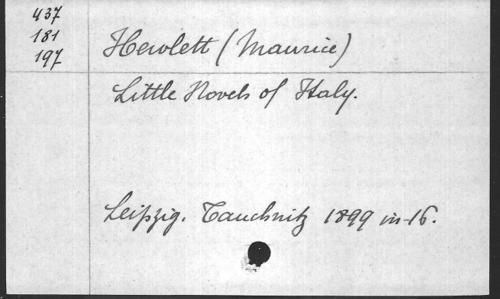 437
181
197
Hewlett (Maurice)
Little Novels of Italy.
Leipzig. Tauchnitz 1899 in-16.